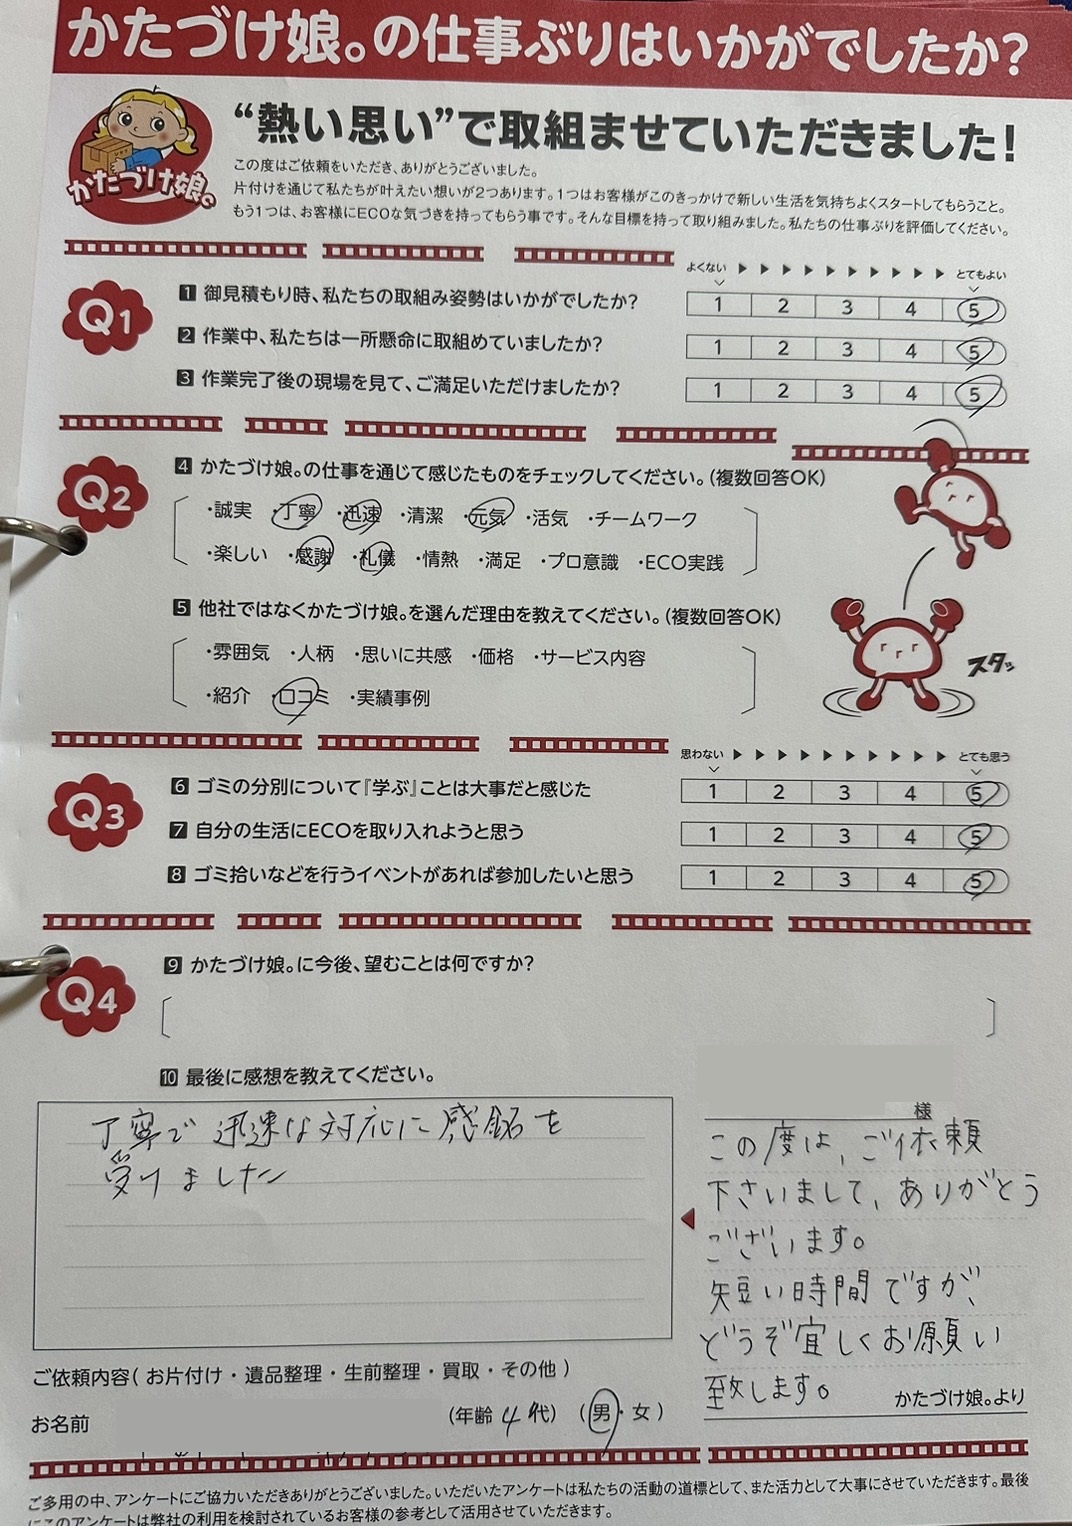 かたづけ娘。の仕事ぶりはいかがでしたか?
かたづけ娘。
“熱い思い”で取組ませていただきました!
この度はご依頼をいただき、ありがとうございました。
片付けを通じて私たちが叶えたい想いが2つあります。1つはお客様がこのきっかけで新しい生活を気持ちよくスタートしてもらうこと。
もう1つは、お客様にECOな気づきを持ってもらう事です。そんな目標を持って取り組みました。私たちの仕事ぶりを評価してください。
よくない ▶ ▶ ▶ ▶ ▶ ▶ ▶ ▶ ▶ ▶ とてもよい
Q1
1 御見積もり時、私たちの取組み姿勢はいかがでしたか? 1 2 3 4 5
2 作業中、私たちは一所懸命に取組めていましたか? 1 2 3 4 5
3 作業完了後の現場を見て、ご満足いただけましたか? 1 2 3 4 5
Q2
4 かたづけ娘。の仕事を通じて感じたものをチェックしてください。(複数回答OK)
・誠実 ・丁寧 ・迅速 ・清潔 ・元気 ・活気 ・チームワーク
・楽しい ・感謝 ・礼儀 ・情熱 ・満足 ・プロ意識 ・ECO実践
5 他社ではなくかたづけ娘。を選んだ理由を教えてください。(複数回答OK)
・雰囲気 ・人柄 ・思いに共感 ・価格 ・サービス内容
・紹介 ・口コミ ・実績事例
スタッ
思わない ▶ ▶ ▶ ▶ ▶ ▶ ▶ ▶ ▶ ▶ とても思う
Q3
6 ゴミの分別について『学ぶ』ことは大事だと感じた 1 2 3 4 5
7 自分の生活にECOを取り入れようと思う 1 2 3 4 5
8 ゴミ拾いなどを行うイベントがあれば参加したいと思う 1 2 3 4 5
Q4
9 かたづけ娘。に今後、望むことは何ですか?
10 最後に感想を教えてください。
丁寧で迅速な対応に感銘を
受けました
様
この度は、ご依頼
下さいまして、ありがとう
ございます。
短い時間ですが、
どうぞ宜しくお願い
致します。
かたづけ娘。より
ご依頼内容( お片付け・遺品整理・生前整理・買取・その他 )
お名前 (年齢 4 代) ( 男・女 )
ご多用の中、アンケートにご協力いただきありがとうございました。いただいたアンケートは私たちの活動の道標として、また活力として大事にさせていただきます。最後
にこのアンケートは弊社の利用を検討されているお客様の参考として活用させていただきます。